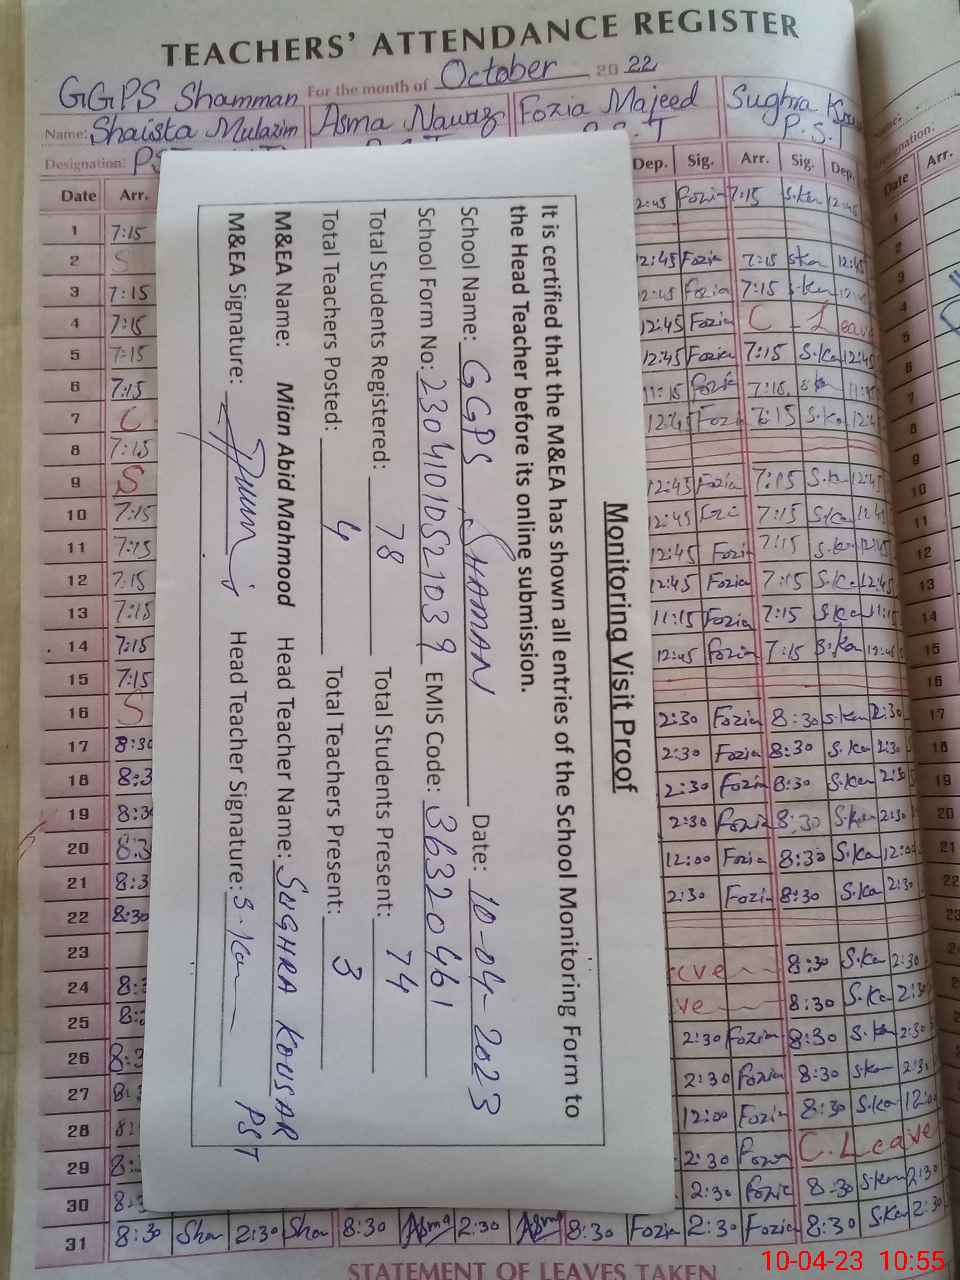 TEACHERS' ATTENDANCE REGISTER
GGPS Shamman For the month of October 2022
Name: Shaista Mulazim Asma Nawaz Fozia Majeed Sughra
Designation: P.S.T
Date Arr. Dep. Sig. Arr. Sig. Dep. Date Arr.
Monitoring Visit Proof
It is certified that the M&EA has shown all entries of the School Monitoring Form to
the Head Teacher before its online submission.
School Name: GGPS SHAMAN Date: 10-04-2023
School Form No: 2304101052103 9 EMIS Code: 36320461
Total Students Registered: 78 Total Students Present: 74
Total Teachers Posted: 4 Total Teachers Present: 3
M&EA Name: Mian Abid Mahmood Head Teacher Name: SUGHRA KOUSAR PST
M&EA Signature: Head Teacher Signature: S.Kou
1 7:15
2 S 12:45 Fozia 7:15 12:45
3 7:15 12:45 Fozia 7:15 S.Kou
4 7:15 12:45 Fozia C Leave
5 7:15 12:45 Fozia 7:15 S.Ko 12:45
6 7:15 11:15 Fozia 7:15
7 C 12:45 Fozi 7:15 S.Ko 12:45
8 7:15
9 S 12:45 Fozia 7:15 S.Ko 12:45
10 7:15 12:45 Fozi 7:15 S.Ko 12:45
11 7:15 12:45 Fozi 7:15 S.Ko 12:45
12 7:15 12:45 Fozia 7:15 S.Ko 12:45
13 7:15 11:15 Fozia 7:15 S.Ko 11:15
14 7:15 12:45 Fozia 7:15 S.Ko 12:45
15 7:15
16 S 2:30 Fozia 8:30 S.Kou 2:30
17 8:30 2:30 Fozia 8:30 S.Ko 2:30
18 8:3 2:30 Fozia 8:30 S.Kou 2:30
19 8:30 2:30 Fozia 8:30 S.Kou 2:30
20 8:3 12:00 Fozia 8:30 S.Ko 12:00
21 8:3 2:30 Fozia 8:30 S.Ko 2:30
22 8:30
23 8:30 S.Kou 2:30
24 8: 8:30 S.Ko 2:30
25 8: 2:30 Fozia 8:30 S.Ko 2:30
26 8:3 2:30 Fozia 8:30 S.Kou 2:30
27 8: 12:00 Fozia 8:30 S.Ko 12:00
28 8: 2:30 C. Leave
29 8: 2:30 Fozia 8:30 S.Kou 2:30
30 8:
31 8:30 Sha 2:30 Sha 8:30 Asma 2:30 Asma 8:30 Fozia 2:30 Fozia 8:30 S.Ko 2:30
STATEMENT OF LEAVES TAKEN
10-04-23 10:55